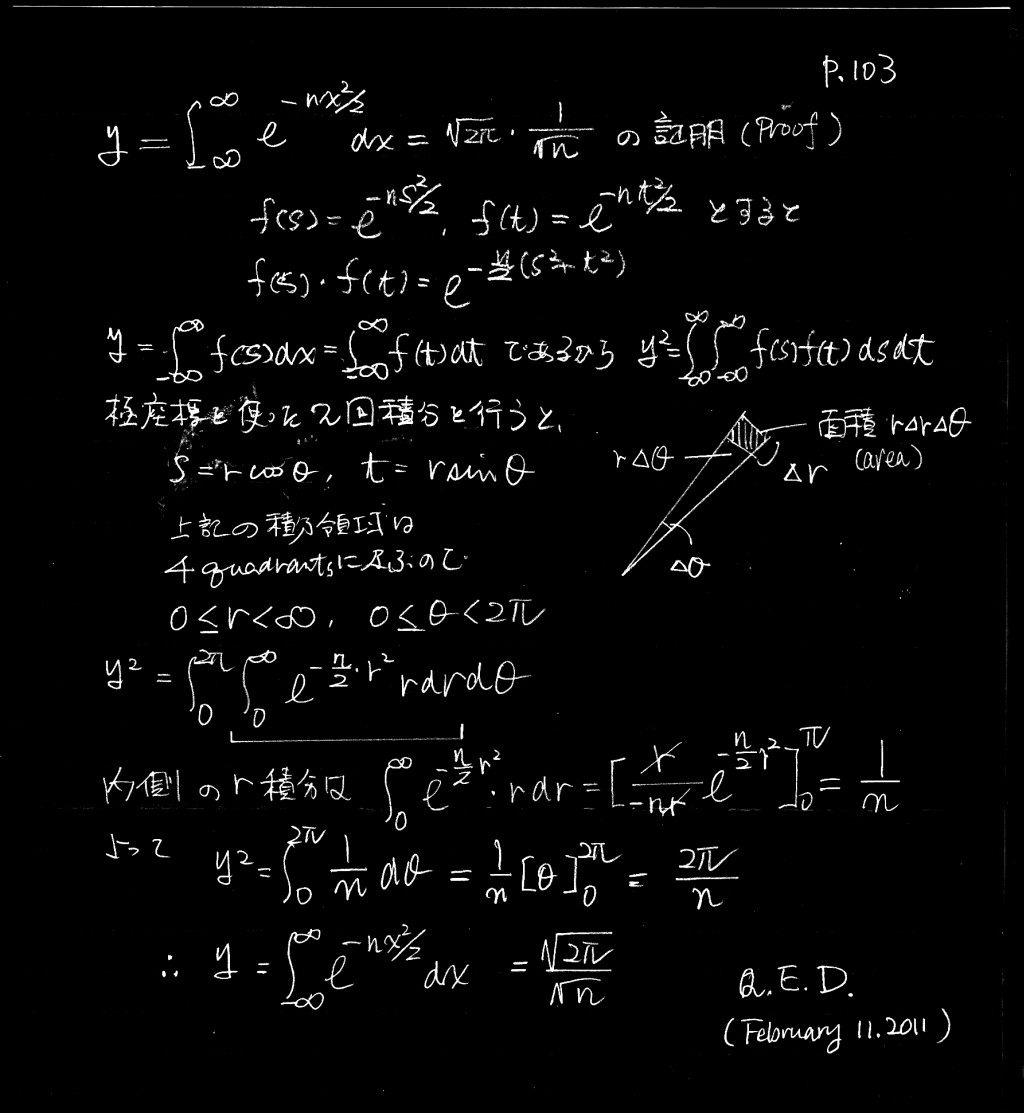 P.103
y = ∫_{-∞}^{∞} e^{-nx²/2} dx = √2π · 1/√n の証明 (Proof)
f(s) = e^{-ns²/2}, f(t) = e^{-nt²/2} とすると
f(s)·f(t) = e^{-n/2(s²+t²)}
y = ∫_{-∞}^{∞} f(s)dx = ∫_{-∞}^{∞} f(t)dt であるから y² = ∫_{-∞}^{∞}∫_{-∞}^{∞} f(s)f(t) ds dt
極座標を使った2回積分を行うと、
s = r cos θ, t = r sin θ
rΔθ
面積 rΔrΔθ
(area)
Δr
Δθ
上記の積分領域は
4 quadrantsに及ぶので
0 ≤ r < ∞, 0 ≤ θ < 2π
y² = ∫_{0}^{2π}∫_{0}^{∞} e^{-n/2·r²} r dr dθ
内側のr積分は ∫_{0}^{∞} e^{-n/2 r²}·r dr = [r/-nr e^{-n/2 r²}]_{0}^{π} = 1/n
よって y² = ∫_{0}^{2π} 1/n dθ = 1/n [θ]_{0}^{2π} = 2π/n
∴ y = ∫_{-∞}^{∞} e^{-nx²/2} dx = √2π/√n
Q.E.D.
(February 11.2011)